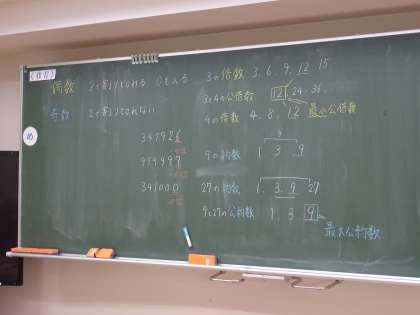 偶数 2で割りきれる 0も入る
奇数 2で割りきれない
め
3の倍数 3. 6. 9. 12. 15
3と4の公倍数 12 24. 36.
4の倍数 4. 8. 12 最小公倍数
9の約数 1. 3. 9
27の約数 1. 3. 9 27
9と27の公約数 1 3 9
最大公約数
341000